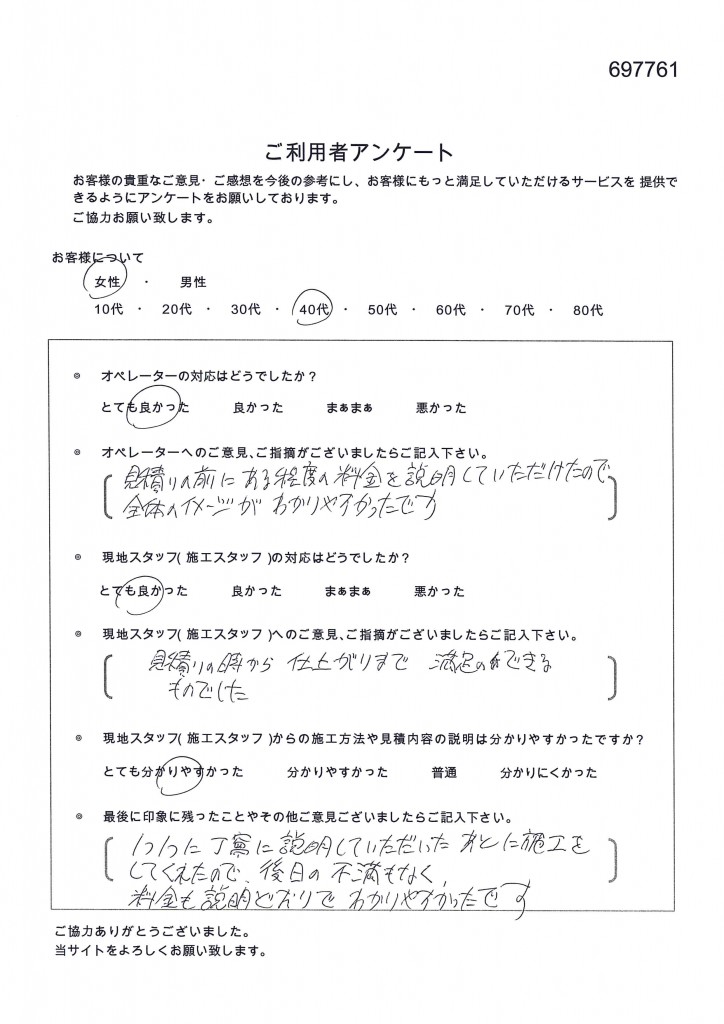 697761
ご利用者アンケート
お客様の貴重なご意見・ご感想を今後の参考にし、お客様にもっと満足していただけるサービスを 提供で
きるようにアンケートをお願いしております。
ご協力お願い致します。
お客様について
女性 ・ 男性
10代 ・ 20代 ・ 30代 ・ 40代 ・ 50代 ・ 60代 ・ 70代 ・ 80代
◎ オペレーターの対応はどうでしたか？
とても良かった 良かった まぁまぁ 悪かった
◎ オペレーターへのご意見、ご指摘がございましたらご記入下さい。
見積りの前に ある程度の料金を説明していただけたので
全体のイメージが わかりやすかったです
◎ 現地スタッフ( 施工スタッフ )の対応はどうでしたか？
とても良かった 良かった まぁまぁ 悪かった
◎ 現地スタッフ( 施工スタッフ )へのご意見、ご指摘がございましたらご記入下さい。
見積りの時から 仕上がりまで 満足のできる
ものでした
◎ 現地スタッフ( 施工スタッフ )からの施工方法や見積内容の説明は分かりやすかったですか？
とても分かりやすかった 分かりやすかった 普通 分かりにくかった
◎ 最後に印象に残ったことやその他ご意見ございましたらご記入下さい。
1つ1つに 丁寧に説明していただいた あとに施工を
してくれたので、後日の 不満もなく、
料金も説明どおりで わかりやすかったです
ご協力ありがとうございました。
当サイトをよろしくお願い致します。